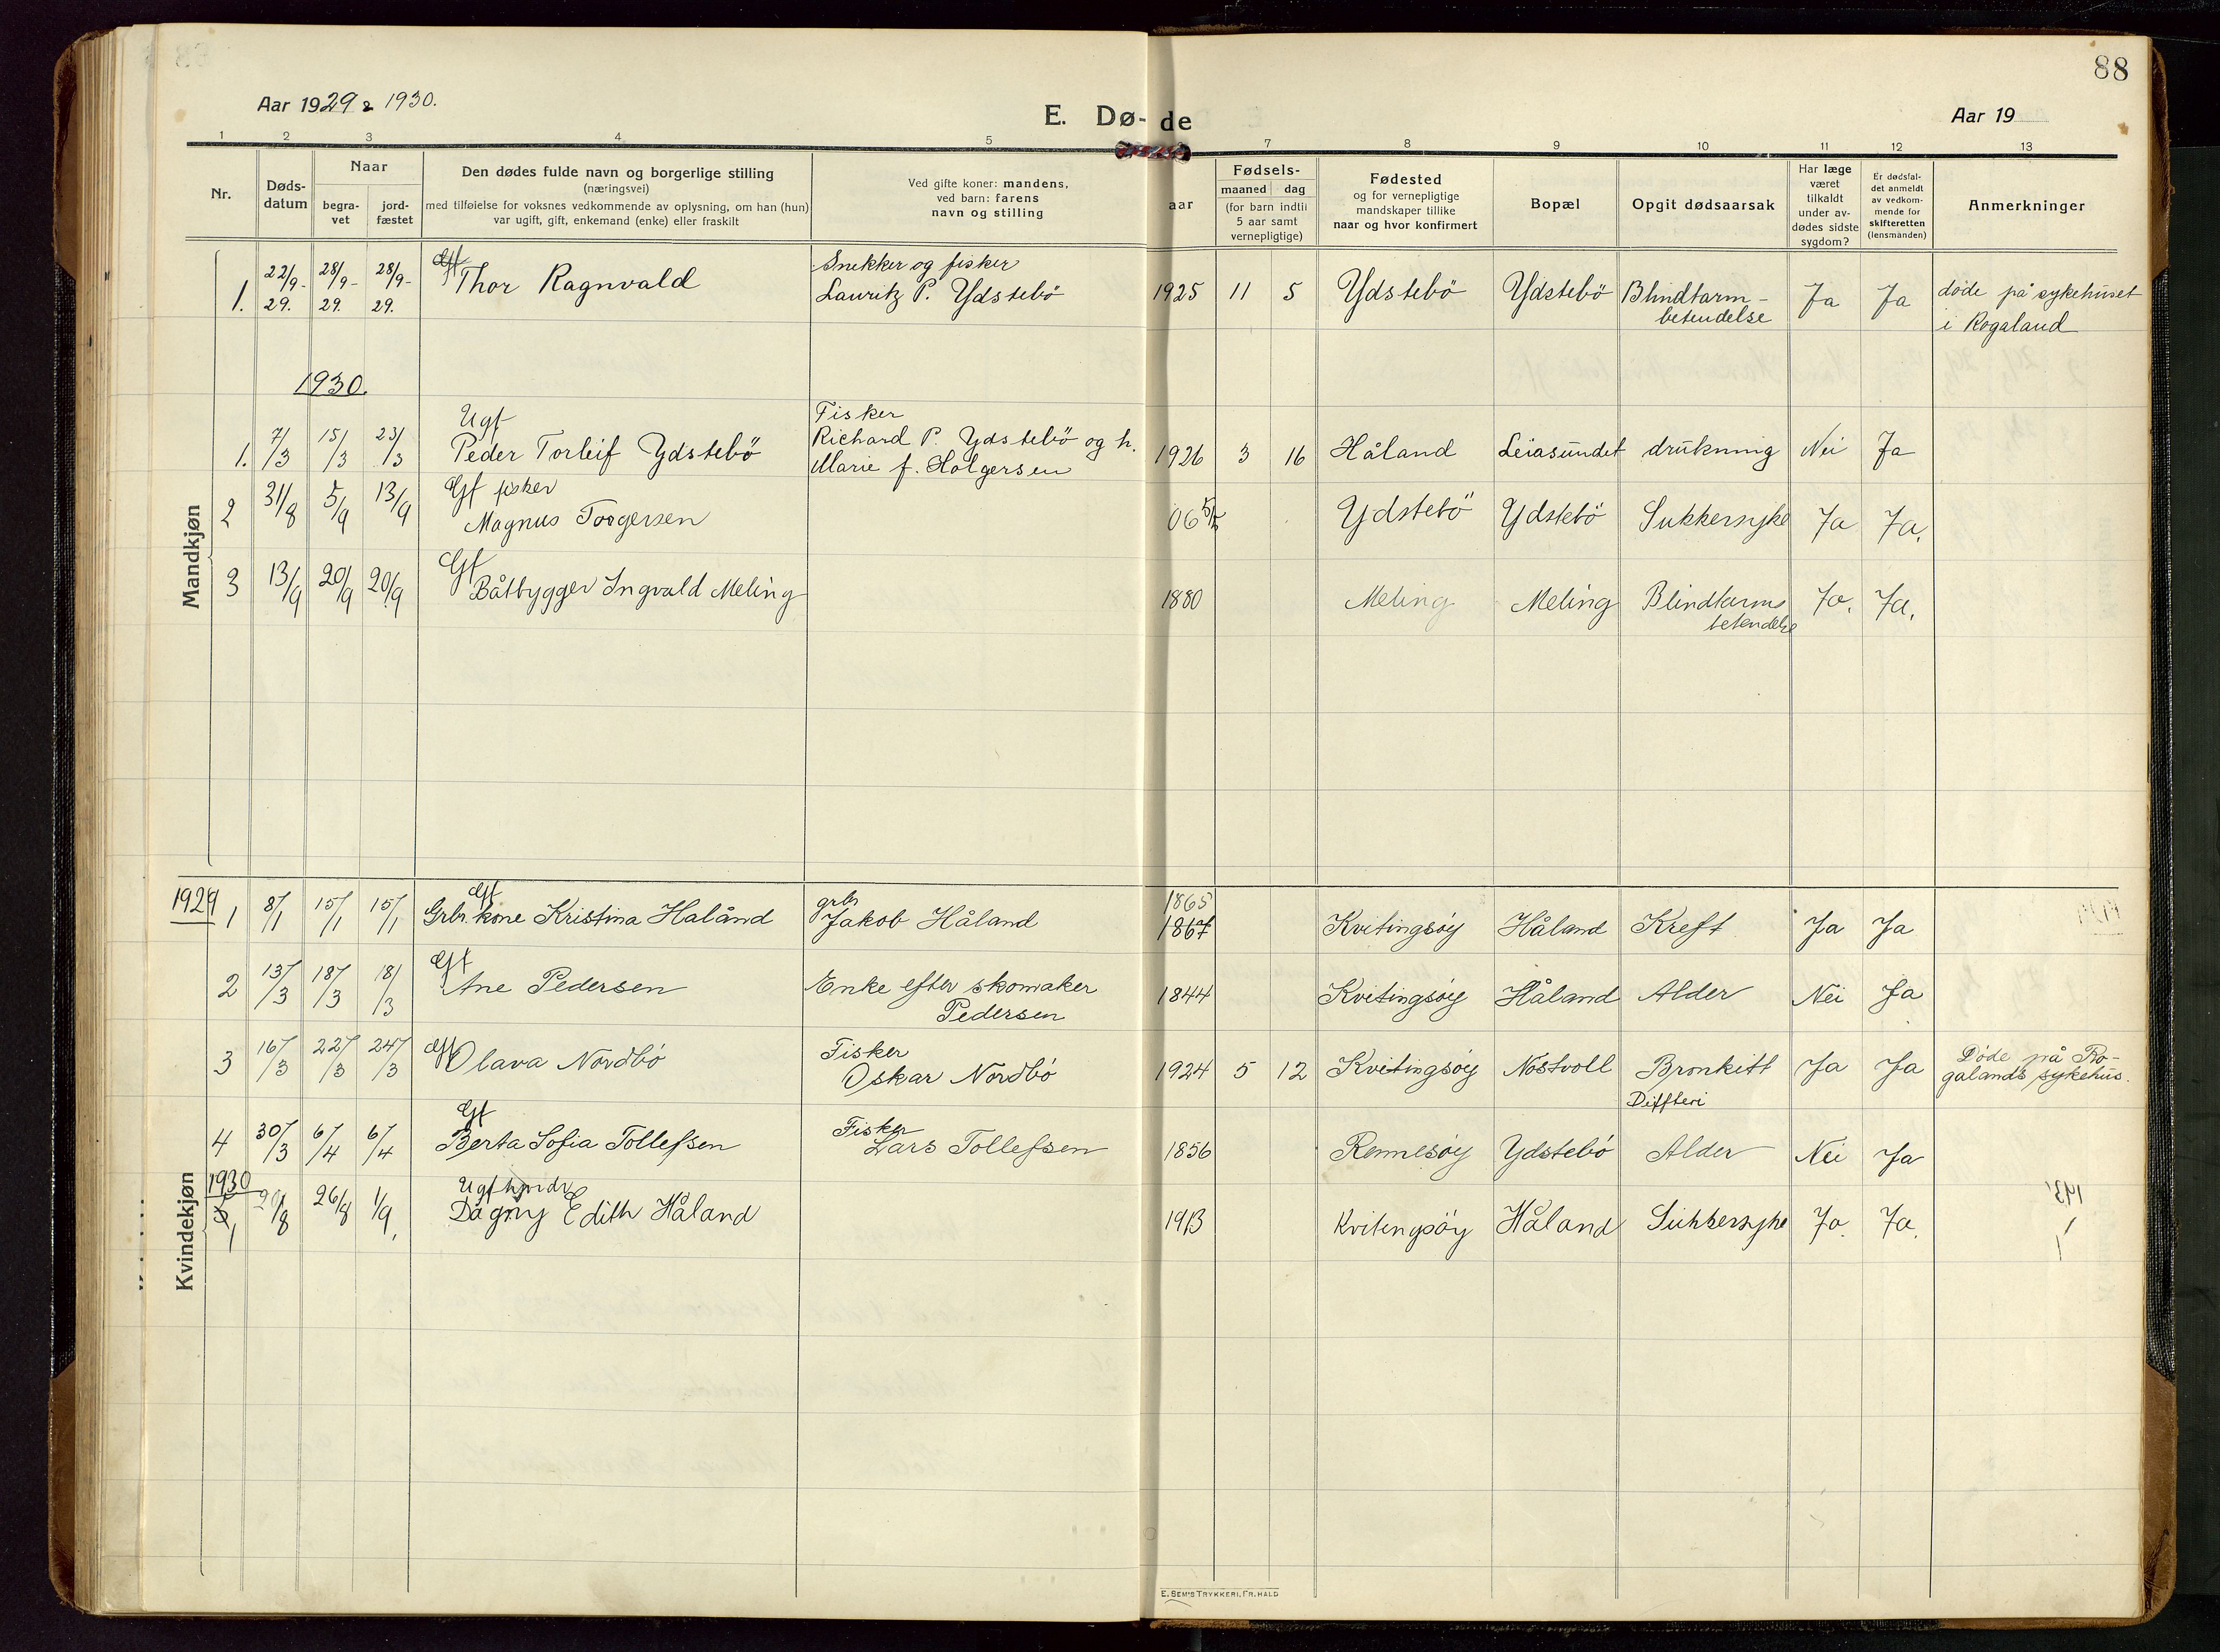 88
Aar 1929 & 1930.
E. Dø- de
Aar 19
1 2 3 4 5 7 8 9 10 11 12 13
Nr.
Døds-
datum
Naar
begra-
vet
jord-
fæstet
Den dødes fulde navn og borgerlige stilling
(næringsvei)
med tilføielse for voksnes vedkommende av oplysning, om han (hun)
var ugift, gift, enkemand (enke) eller fraskilt
Ved gifte koner: mandens,
ved barn: farens
navn og stilling
aar
Fødsels-
maaned dag
(for barn indtil
5 aar samt
vernepligtige)
Fødested
og for vernepligtige
mandskaper tillike
naar og hvor konfirmert
Bopæl
Opgit dødsaarsak
Har læge
været
tilkaldt
under av-
dødes sidste
sygdom?
Er dødsfal-
det anmeldt
av vedkom-
mende for
skifteretten
(lensmanden)
Anmerkninger
Mandkjøn
22/9- 28/9- 28/9- Snekker og fisker
1. 29. 29. 29. Thor Ragnvald Lauritz P. Ydstebö 1925 11 5 Ydstebö Ydstebö Blindtarm- Ja Ja døde på sykehuset
betendelse i Rogaland
1930.
Ugf Fisker
1. 7/3 15/3 23/3 Peder Torleif Ydstebö Richard P. Ydstebö og h. 1926 3 16 Håland Leiasundet drukning Nei Ja
Marie f. Holgersen
Gf fisker
2 31/8 5/9 13/9 Magnus Torgersen 06 5/5 Ydstebö Ydstebö Sukkersyke Ja Ja.
Gf
3 13/9 20/9 20/9 Båtbygger Ingvald Meling 1880 Meling Meling Blindtarms Ja. Ja.
betendelse
Kvindekjøn
1929 Gf grbr 1865
1 8/1 15/1 15/1 Grbr. kone Kristina Haland Jakob Håland 1867 Kvitingsøy Håland Kreft Ja Ja
Gf
2 13/3 18/3 18/3 Ane Pedersen Enke efter skomaker 1844 Kvitingsøy Håland Alder Nei Ja
Pedersen
3 16/3 22/3 24/3 Olava Nordbó Fisker
Oskar Nordbó 1924 5 12 Kvitingsøy Nostvoll Bronkitt Ja Ja Døde på Ro-
Diffteri galands sykehus.
Gf Fisker
4 30/3 6/4 6/4 Berta Sofia Tollefsen Lars Tollefsen 1856 Rennesøy Ydstebó Alder Nei Ja
1930 Ugf
1 20/8 26/8 1/9. Dagny Edith Håland 1913 Kvitingsöy Håland Sukkersyke Ja. Ja.
E. SEM'S TRYKKERI, FR.HALD